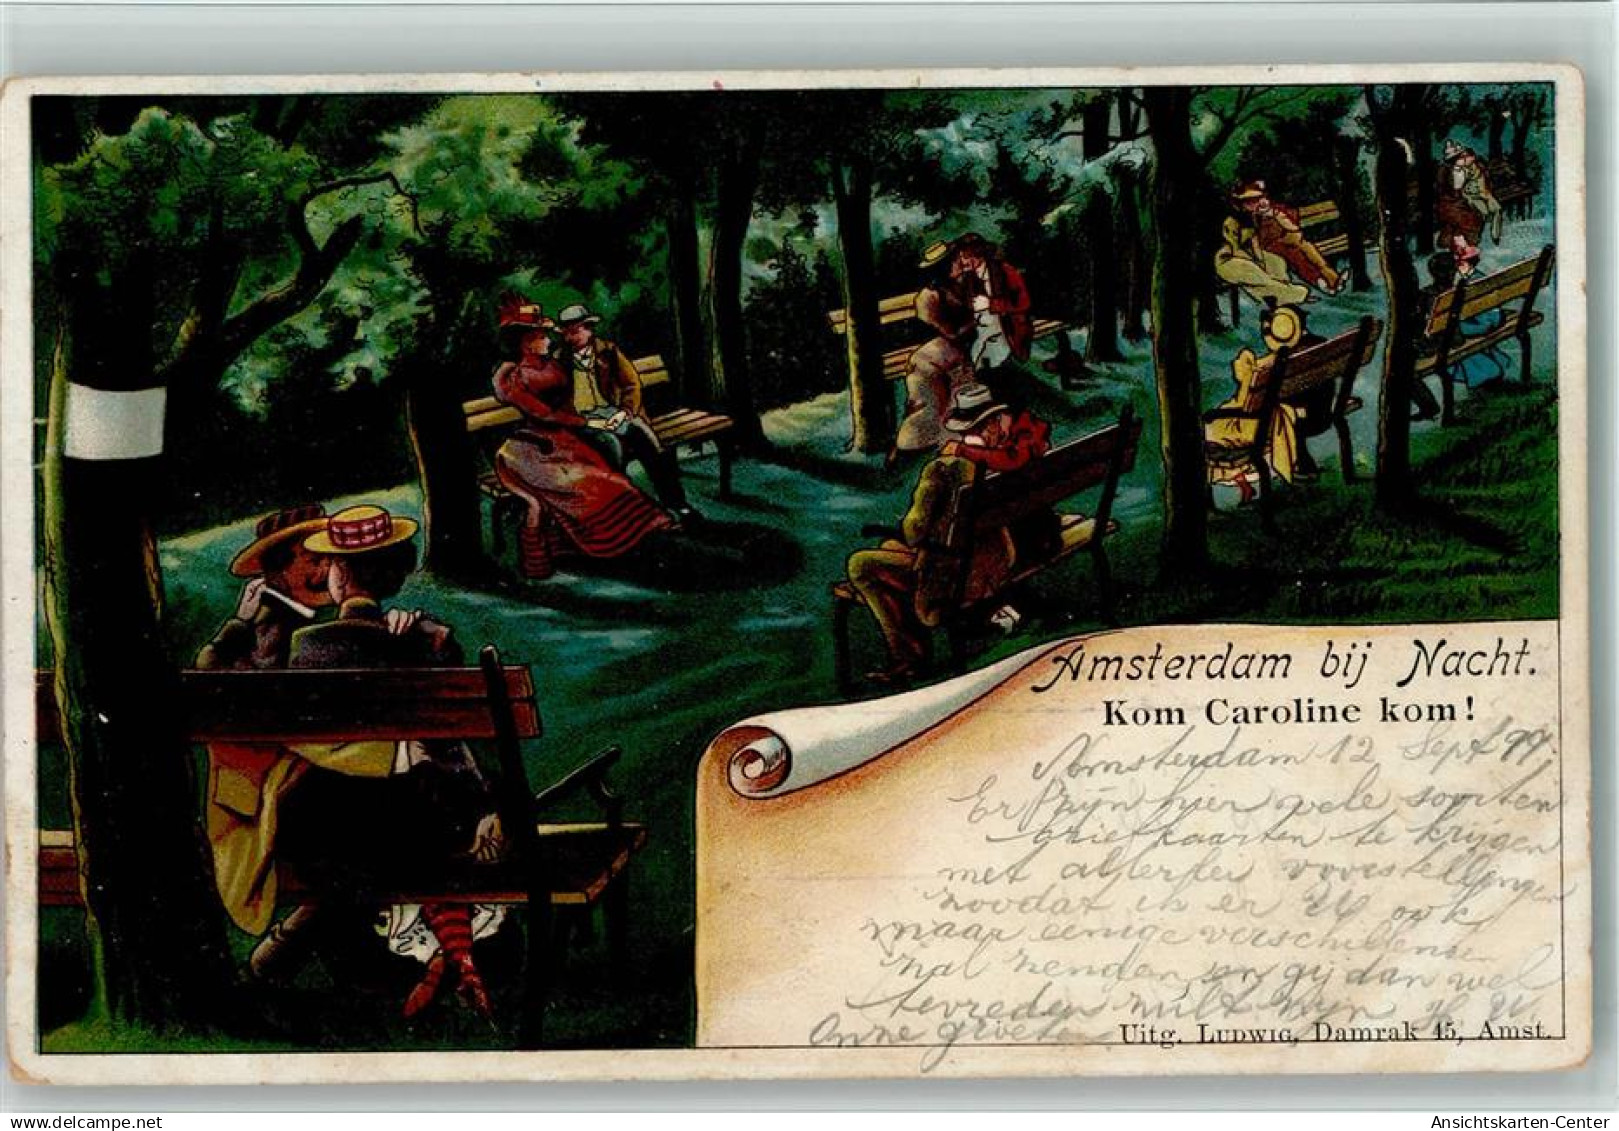 Amsterdam bij Nacht.
Kom Caroline kom!
Amsterdam 12 Sept 99
Er zijn hier vele soorten
briefkaarten te krijgen
met allerlei voorstellingen
zoodat ik er U ook
maar eenige verschillende
zal zenden en gij dan wel
tevreden zult zijn
groeten
Uitg. Ludwig, Damrak 45, Amst.
AnsichtsKarten-Center